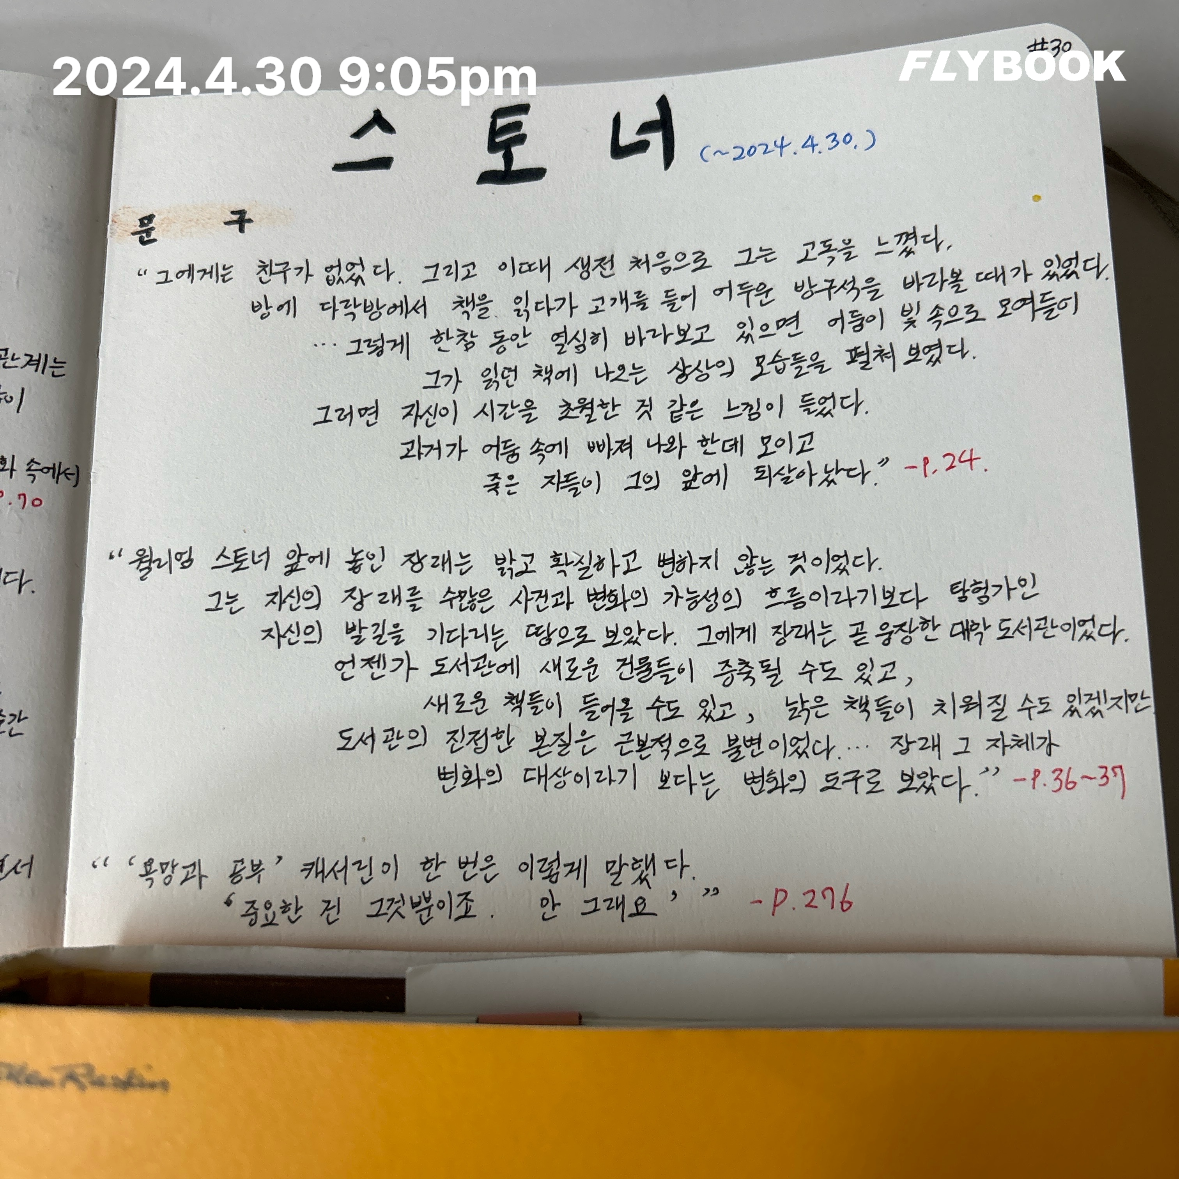 2024.4.30 9:05pm
FLYBOOK
#30
스토너 (~2024.4.30.)
문구
“그에게는 친구가 없었다. 그리고 이때 생전 처음으로 그는 고독을 느꼈다.
밤에 다락방에서 책을 읽다가 고개를 들어 어두운 방구석을 바라볼 때가 있었다.
… 그렇게 한참 동안 열심히 바라보고 있으면 어둠이 빛 속으로 모여들어
그가 읽던 책에 나오는 상상의 모습들을 펼쳐 보였다.
그러면 자신이 시간을 초월한 것 같은 느낌이 들었다.
과거가 어둠 속에 빠져 나와 한데 모이고
죽은 자들이 그의 앞에 되살아났다.” -P.24.
“윌리엄 스토너 앞에 놓인 장래는 밝고 확실하고 변하지 않는 것이었다.
그는 자신의 장래를 수많은 사건과 변화의 가능성의 흐름이라기보다 탐험가인
자신의 발길을 기다리는 땅으로 보았다. 그에게 장래는 곧 웅장한 대학 도서관이었다.
언젠가 도서관에 새로운 건물들이 증축될 수도 있고,
새로운 책들이 들어올 수도 있고, 낡은 책들이 치워질 수도 있겠지만
도서관의 진정한 본질은 근본적으로 불변이었다… 장래 그 자체가
변화의 대상이라기 보다는 변화의 도구로 보았다.” -P.36~37
“ ‘욕망과 공부’ 캐서린이 한 번은 이렇게 말했다.
‘중요한 건 그것뿐이죠. 안 그래요’ ” -P.276
관계는
화 속에서
P.70
다.